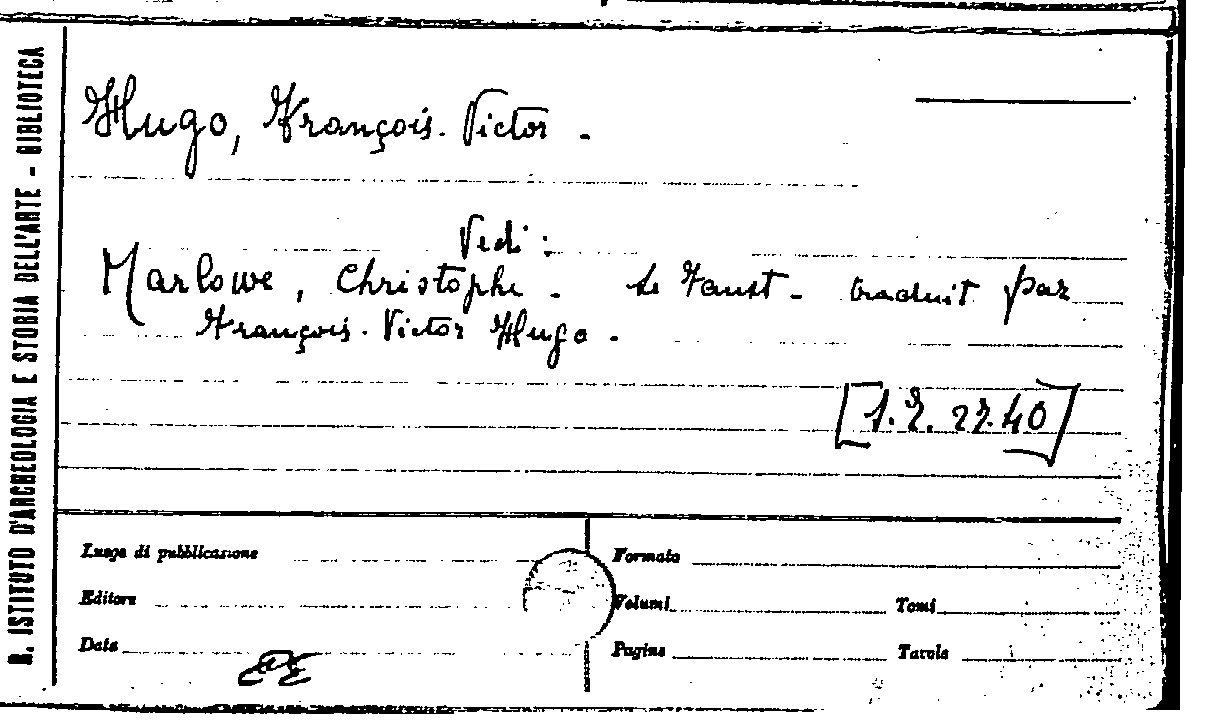 R. ISTITUTO D'ARCHEOLOGIA E STORIA DELL'ARTE - BIBLIOTECA
Hugo, François-Victor -
Vedi:
Marlowe, Christophe - Le Faust - traduit par
François-Victor Hugo.
Luogo di pubblicazione
Formato
Editore
Volumi
Tomi
Data
Pagine
Tavole